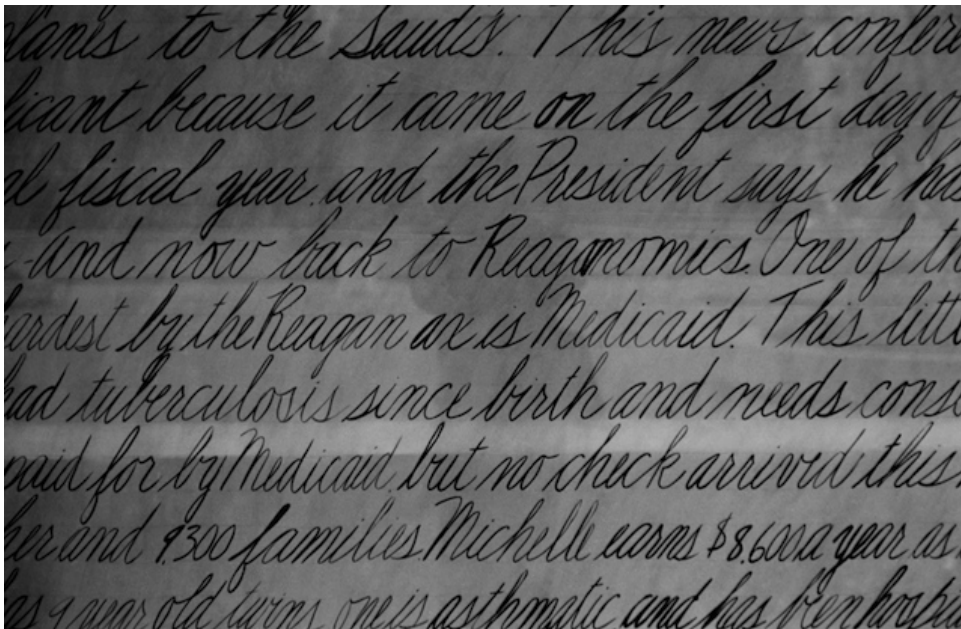 planes to the Saudis. This news confer
ficant because it came on the first day of
al fiscal year and the President says he has
And now back to Reagonomics. One of th
hardest by the Reagan ax is Medicaid. This littl
had tuberculosis since birth and needs cons
paid for by Medicaid but no check arrived this
her and 9300 families Michelle earns $8,600 a year as
as 9 year old twins, one is asthmatic and has been hospi